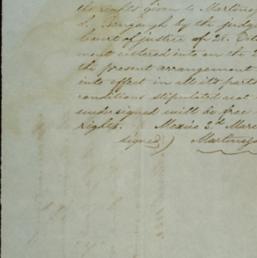 the rights given to Martinez
by the judge
court of justice of
ment entered into on the 2
the present arrangement
into effect in all its parts
conditions stipulated
undersigned will be free
rights. Mexico 2d Mar
signed) Martinez